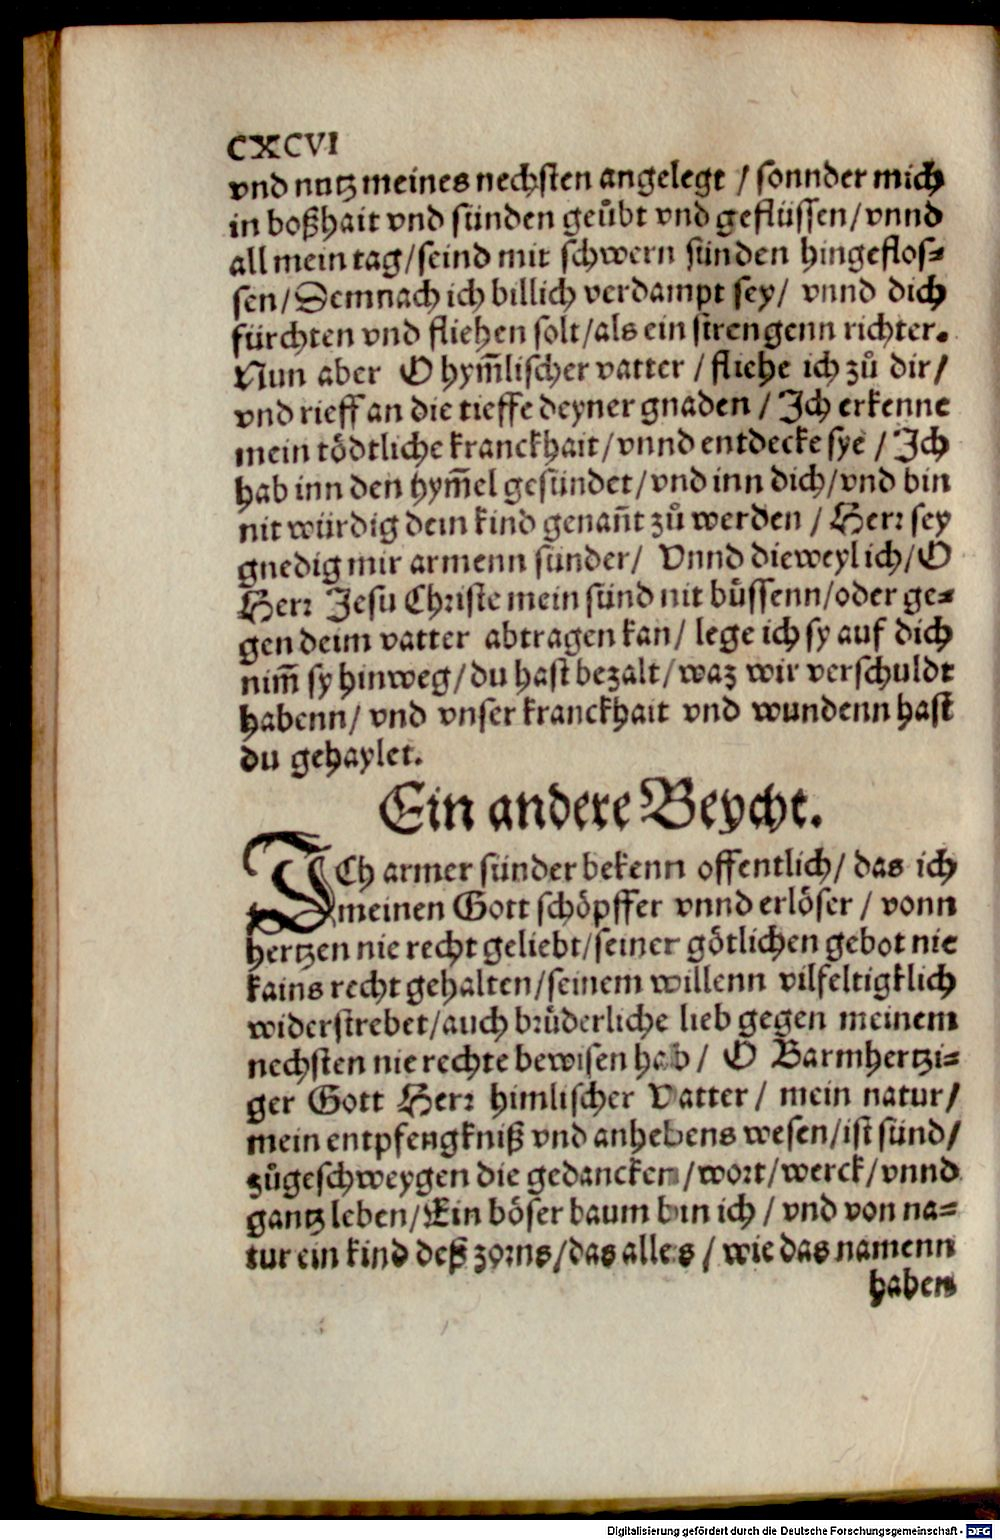 CXCVI
vnd nutz meines nechsten angelegt / sonnder mich
in boßhait vnd sünden geuͤbt vnd geflüssen/vnnd
all mein tag/seind mit schwern sünden hingeflos⸗
sen/Demnach ich billich verdampt sey/ vnnd dich
fürchten vnd fliehen solt/als ein strengenn richter.
Nun aber O hym̃lischer vatter / fliehe ich zuͦ dir/
vnd rieff an die tieffe deyner gnaden / Ich erkenne
mein tödtliche kranckhait/vnnd entdecke sye / Ich
hab inn den hym̃el gesündet/vnd inn dich/vnd bin
nit würdig dein kind genañt zuͦ werden / Herr sey
gnedig mir armenn sünder/ Vnnd dieweyl ich/O
Herr Jesu Christe mein sünd nit buͤssenn/oder ge⸗
gen deim vatter abtragen kan/ lege ich sy auf dich
nim̃ sy hinweg/du hast bezalt/waz wir verschuldt
habenn/ vnd vnser kranckhait vnd wundenn hast
du gehaylet.
Ein andere Beycht.
ICh armer sünder bekenn offentlich/ das ich
meinen Gott schöpffer vnnd erlöser / vonn
hertzen nie recht geliebt/seiner götlichen gebot nie
kains recht gehalten/seinem willenn vilfeltigklich
widerstrebet/auch bruͤderliche lieb gegen meinem
nechsten nie rechte bewisen hab/ O Barmhertzi⸗
ger Gott Herr himlischer Vatter/ mein natur/
mein entpfengkniß vnd anhebens wesen/ist sünd/
zuͦgeschweygen die gedancken/wort/werck/vnnd
gantz leben/Ein böser baum bin ich / vnd von na⸗
tur ein kind deß zorns/das alles / wie das namenn
haben
Digitalisierung gefördert durch die Deutsche Forschungsgemeinschaft - DFG